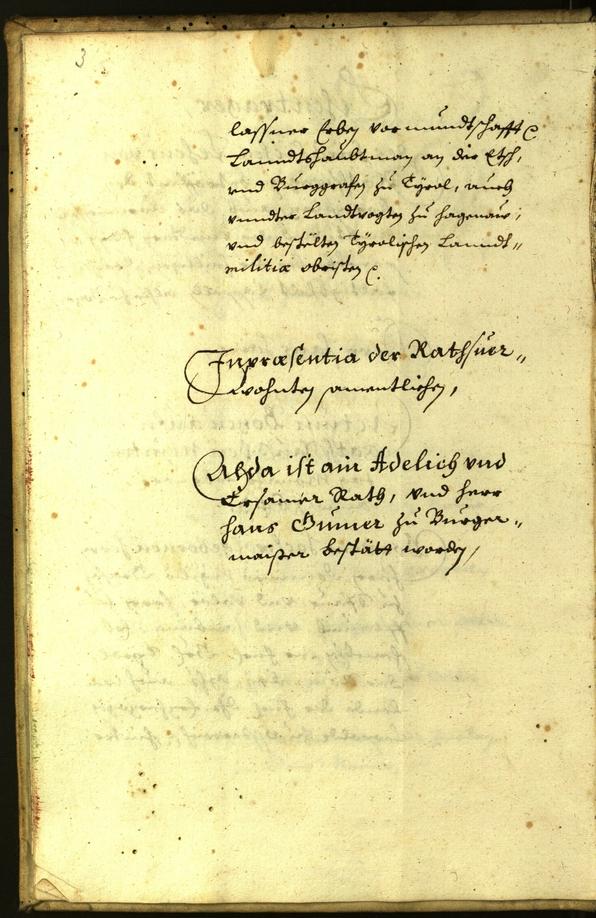 3
lassner Erben vormundtschafft
Lanndtshaubtman an der Etsch,
und Burggrafen zu Tÿrol, auch
vnndter Landtvogten zu hagenaw;
vnd bestelten Tÿrolischen Lanndt„
militiæ obristen
Inpræsentia der Rathsver„
wohnten samentlichen,
Alda ist ain Adelich vnd
Ersamer Rath, vnd herr
hans Gumer zu Burger„
maister bestätt worden,